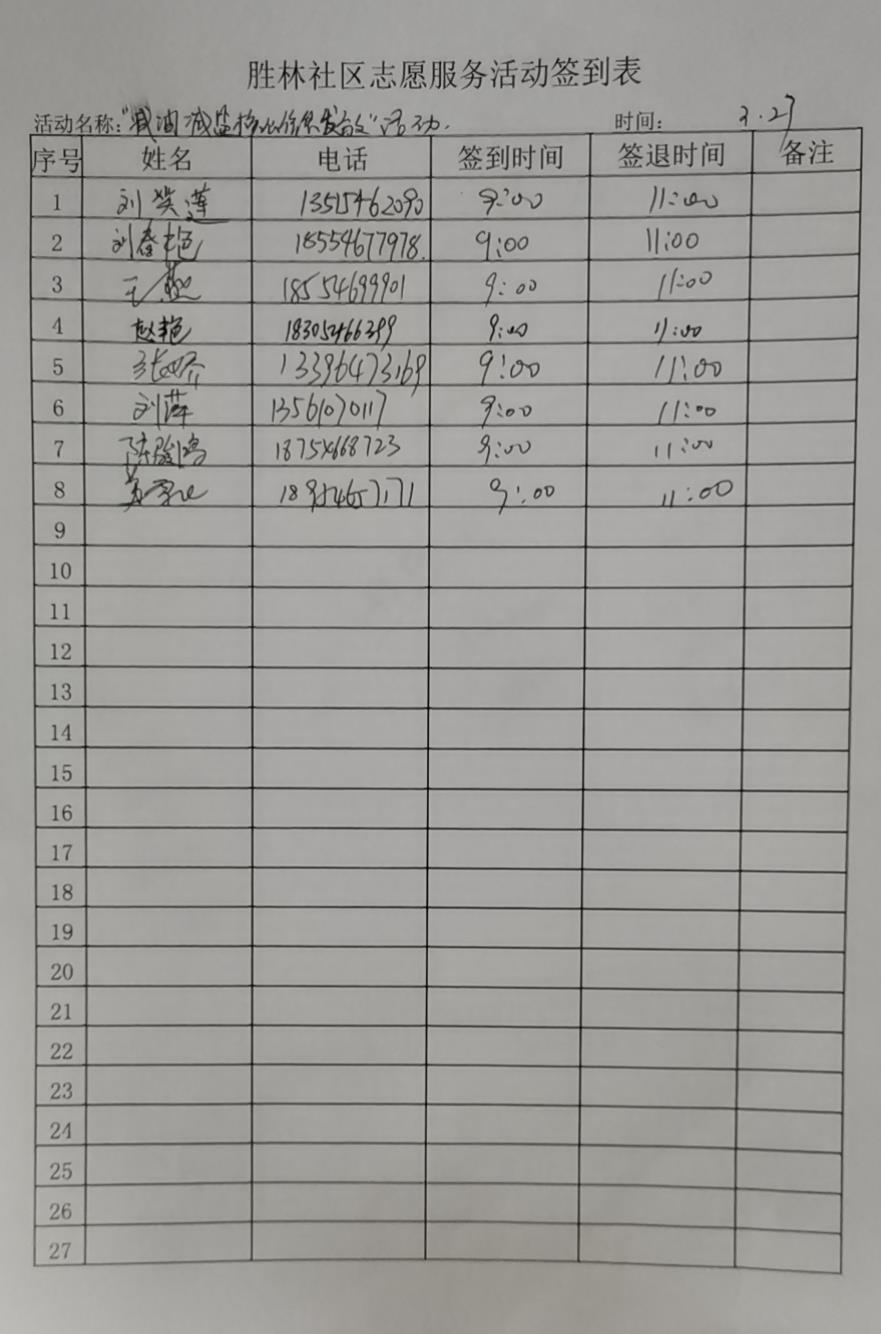 胜林社区志愿服务活动签到表
活动名称："减油减盐核心信息发放"活动. 时间： 3.27
序号 姓名 电话 签到时间 签退时间 备注
1 刘 莲 13515462090 9:00 11:00
2 刘春艳 18554677978. 9:00 11:00
3 王燕 18554699901 9:00 11:00
4 赵艳 18305466399 9:00 11:00
5 张 13396473169 9:00 11:00
6 刘萍 13561070117 9:00 11:00
7 陈骏鸿 18754668723 9:00 11:00
8 18954657171 9:00 11:00
9
10
11
12
13
14
15
16
17
18
19
20
21
22
23
24
25
26
27